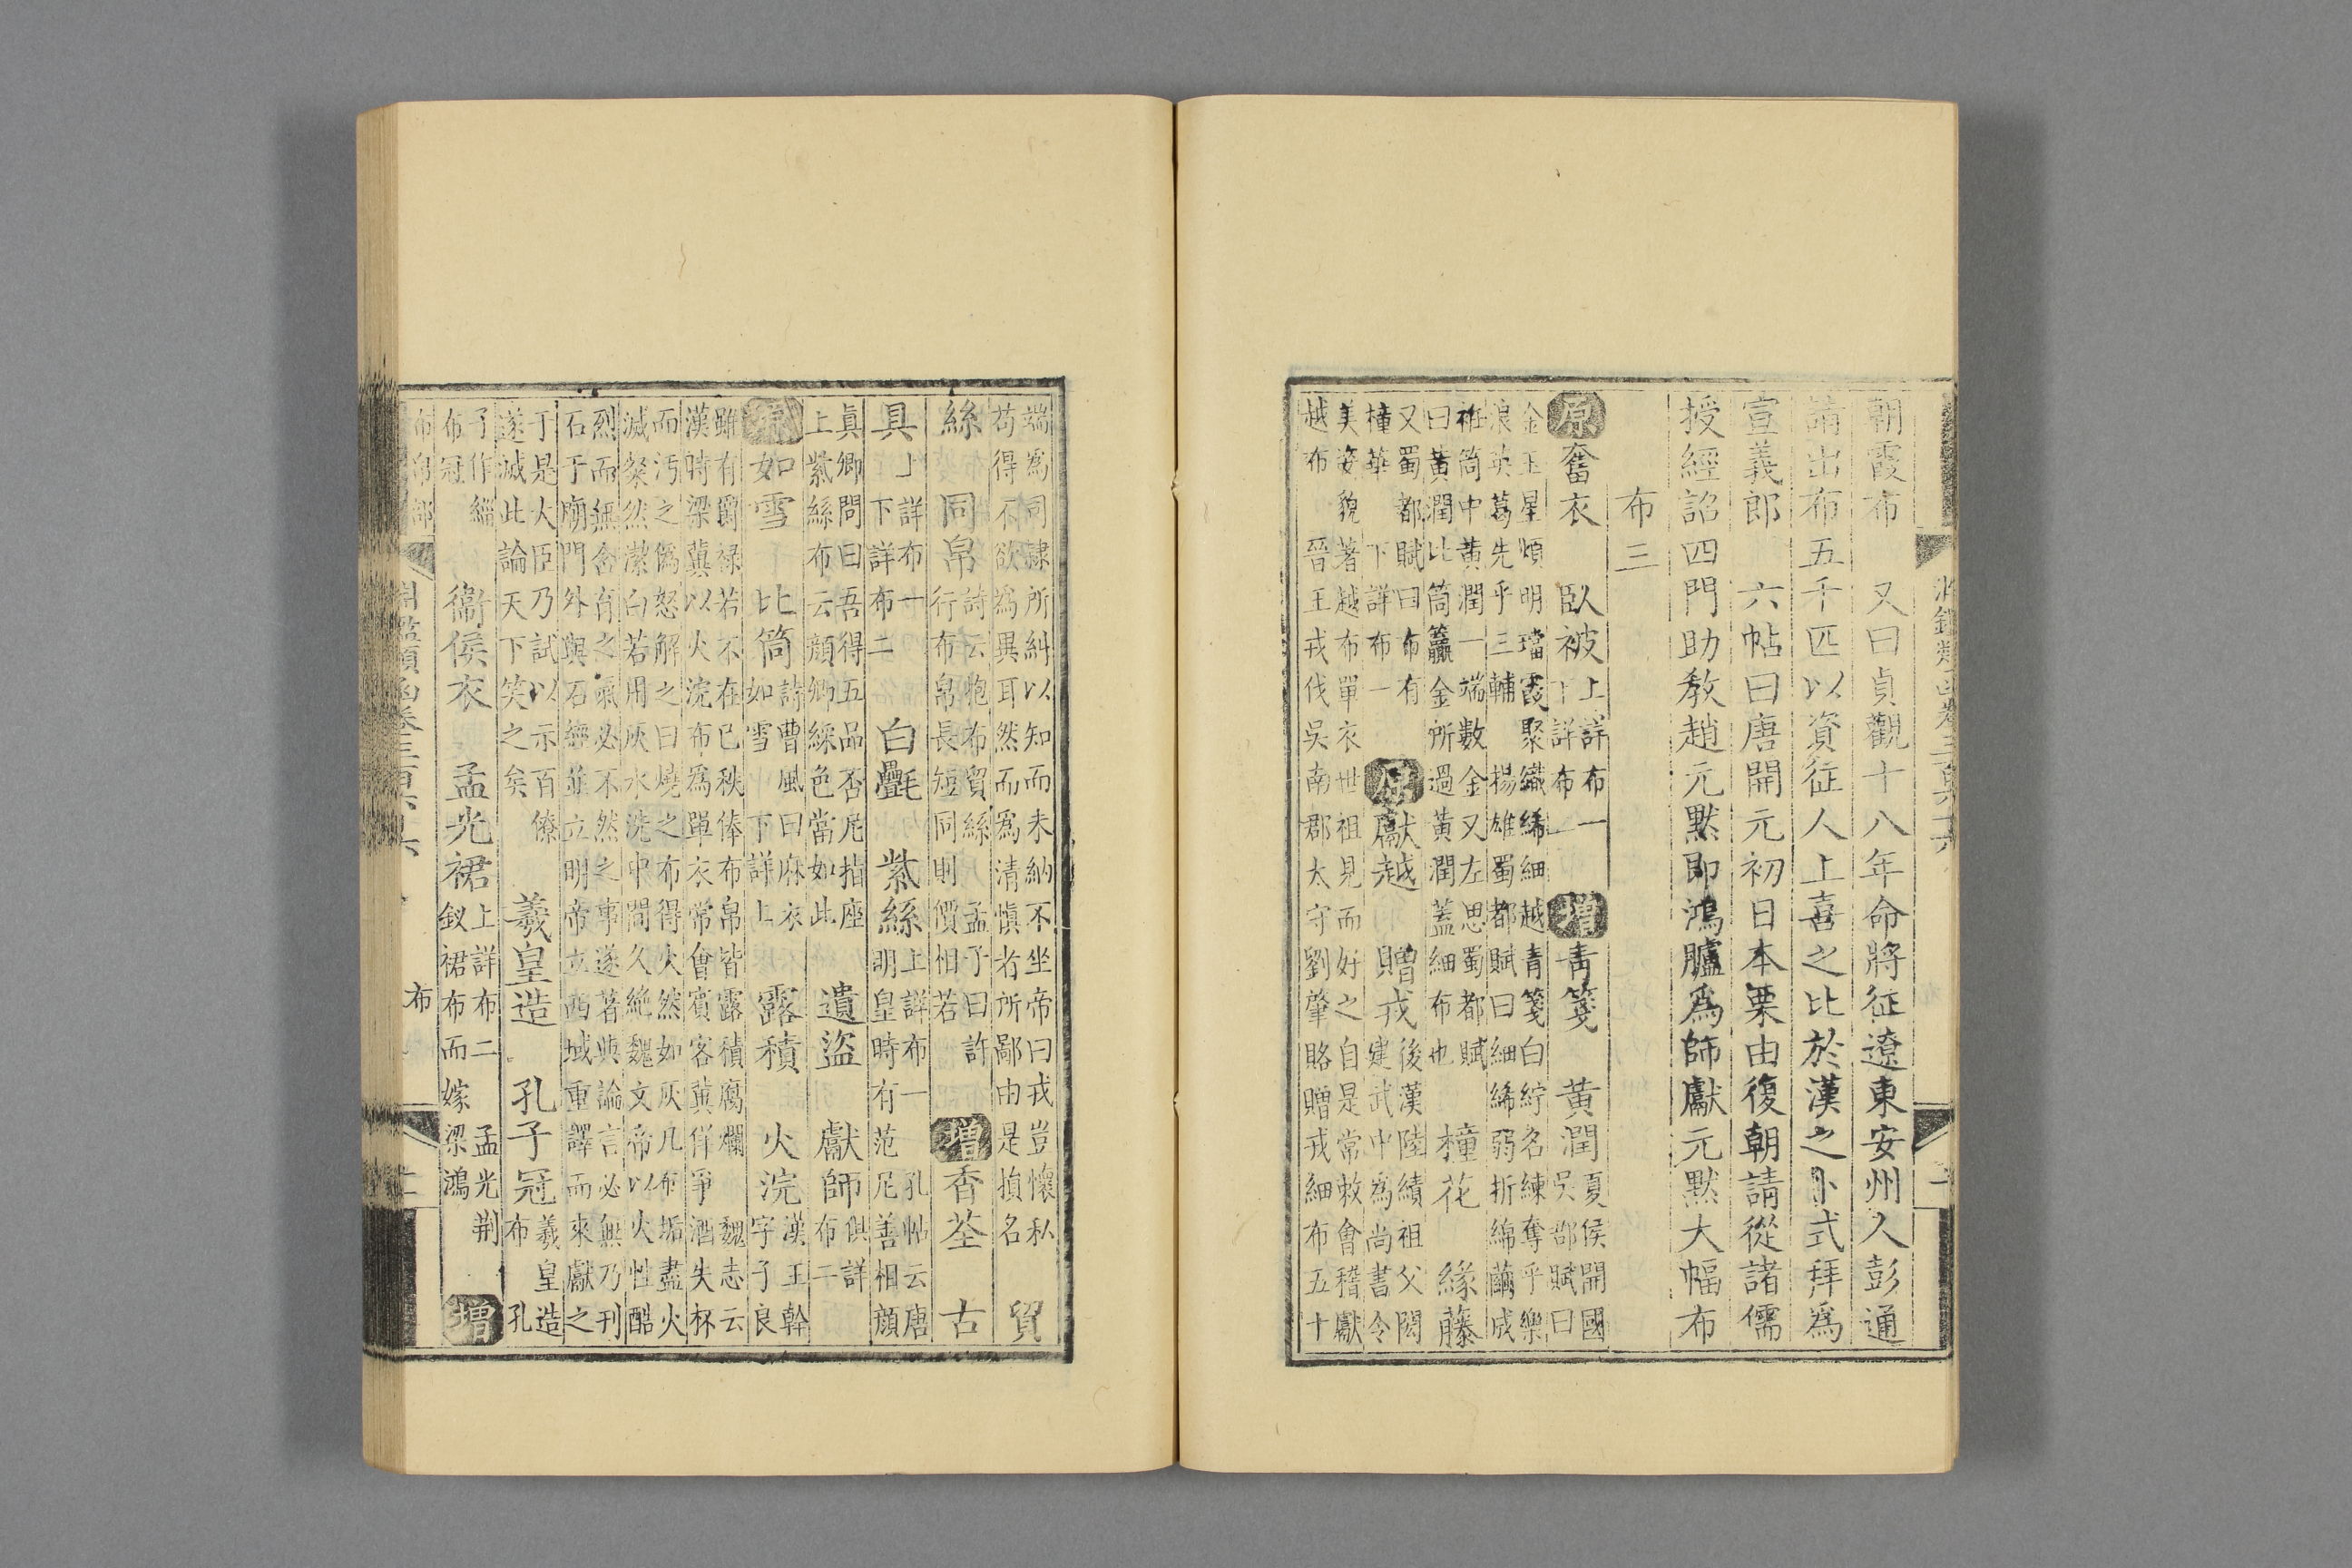 淵鑑類函卷三百六十六
朝霞布　又曰貞觀十八年命將征遼東安州人彭通
請出布五千匹以資征人上喜之比於漢之卜式拜爲
宣義郎　六帖曰唐開元初日本粟由復朝請從諸儒
授經詔四門助教趙元默即鴻臚爲師獻元默大幅布
布三
原 奮衣　臥被 上詳布一 下詳布一 增 青箋　黃潤 夏侯開國 吳郡賦曰
金玉星煩明璫霞聚織絺細越青箋白紵名練奪乎樂
浪英葛先乎三輔　揚雄蜀都賦曰細絺弱折綿繭成
衽筒中黃潤一端數金又左思蜀都賦
曰黃潤比筒籯金所過黃潤蓋細布也 橦花　緣藤
又蜀都賦曰布有
橦華　下詳布一 原 獻越　贈戎 後漢陸續祖父閎 建武中爲尚書令
美姿貌著越布單衣世祖見而好之自是常敕會稽獻
越布　晉王戎伐吳南郡太守劉肇賂贈戎細布五十
端爲司隸所糾以知而未納不坐帝曰戎豈懷私
苟得不欲爲異耳然而爲清愼者所鄙由是損名 貿
絲　同帛 詩云抱布貿絲　孟子曰許 行布帛長短同則價相若 增 香荃　古
具 上詳布一 下詳布二 白氎　紫絲 上詳布一　孔帖云唐 明皇時有范尼善相顏
眞卿問曰吾得五品否尼指座
上紫絲布云顏卿綵色當如此 遺盜　獻師 俱詳 布二
原 如雪　比筒 詩曹風曰麻衣 如雪　下詳上 露積　火浣 漢王幹 字子良
雖有爵祿若不在已秩俸布帛皆露積腐爛　魏志云
漢時梁冀以火浣布爲單衣常會賓客冀佯爭酒失杯
而污之僞怒解之曰燒之布得火然如灰凡布垢盡火
滅粲然潔白若用灰水洗中間久絶魏文帝以火性酷
烈而無含育之氣必不然之事遂著典論言必無乃刊
石于廟門外與石經並立明帝立西域重譯而來獻之
于是大臣乃試以示百僚
遂滅此論天下笑之矣 羲皇造　孔子冠 羲皇造 布　孔
子作緇
布冠 衞侯衣　孟光裙 上詳布二　孟光荆 釵裙布而嫁梁鴻 增
布帛部　淵鑑類函卷三百六十六　布